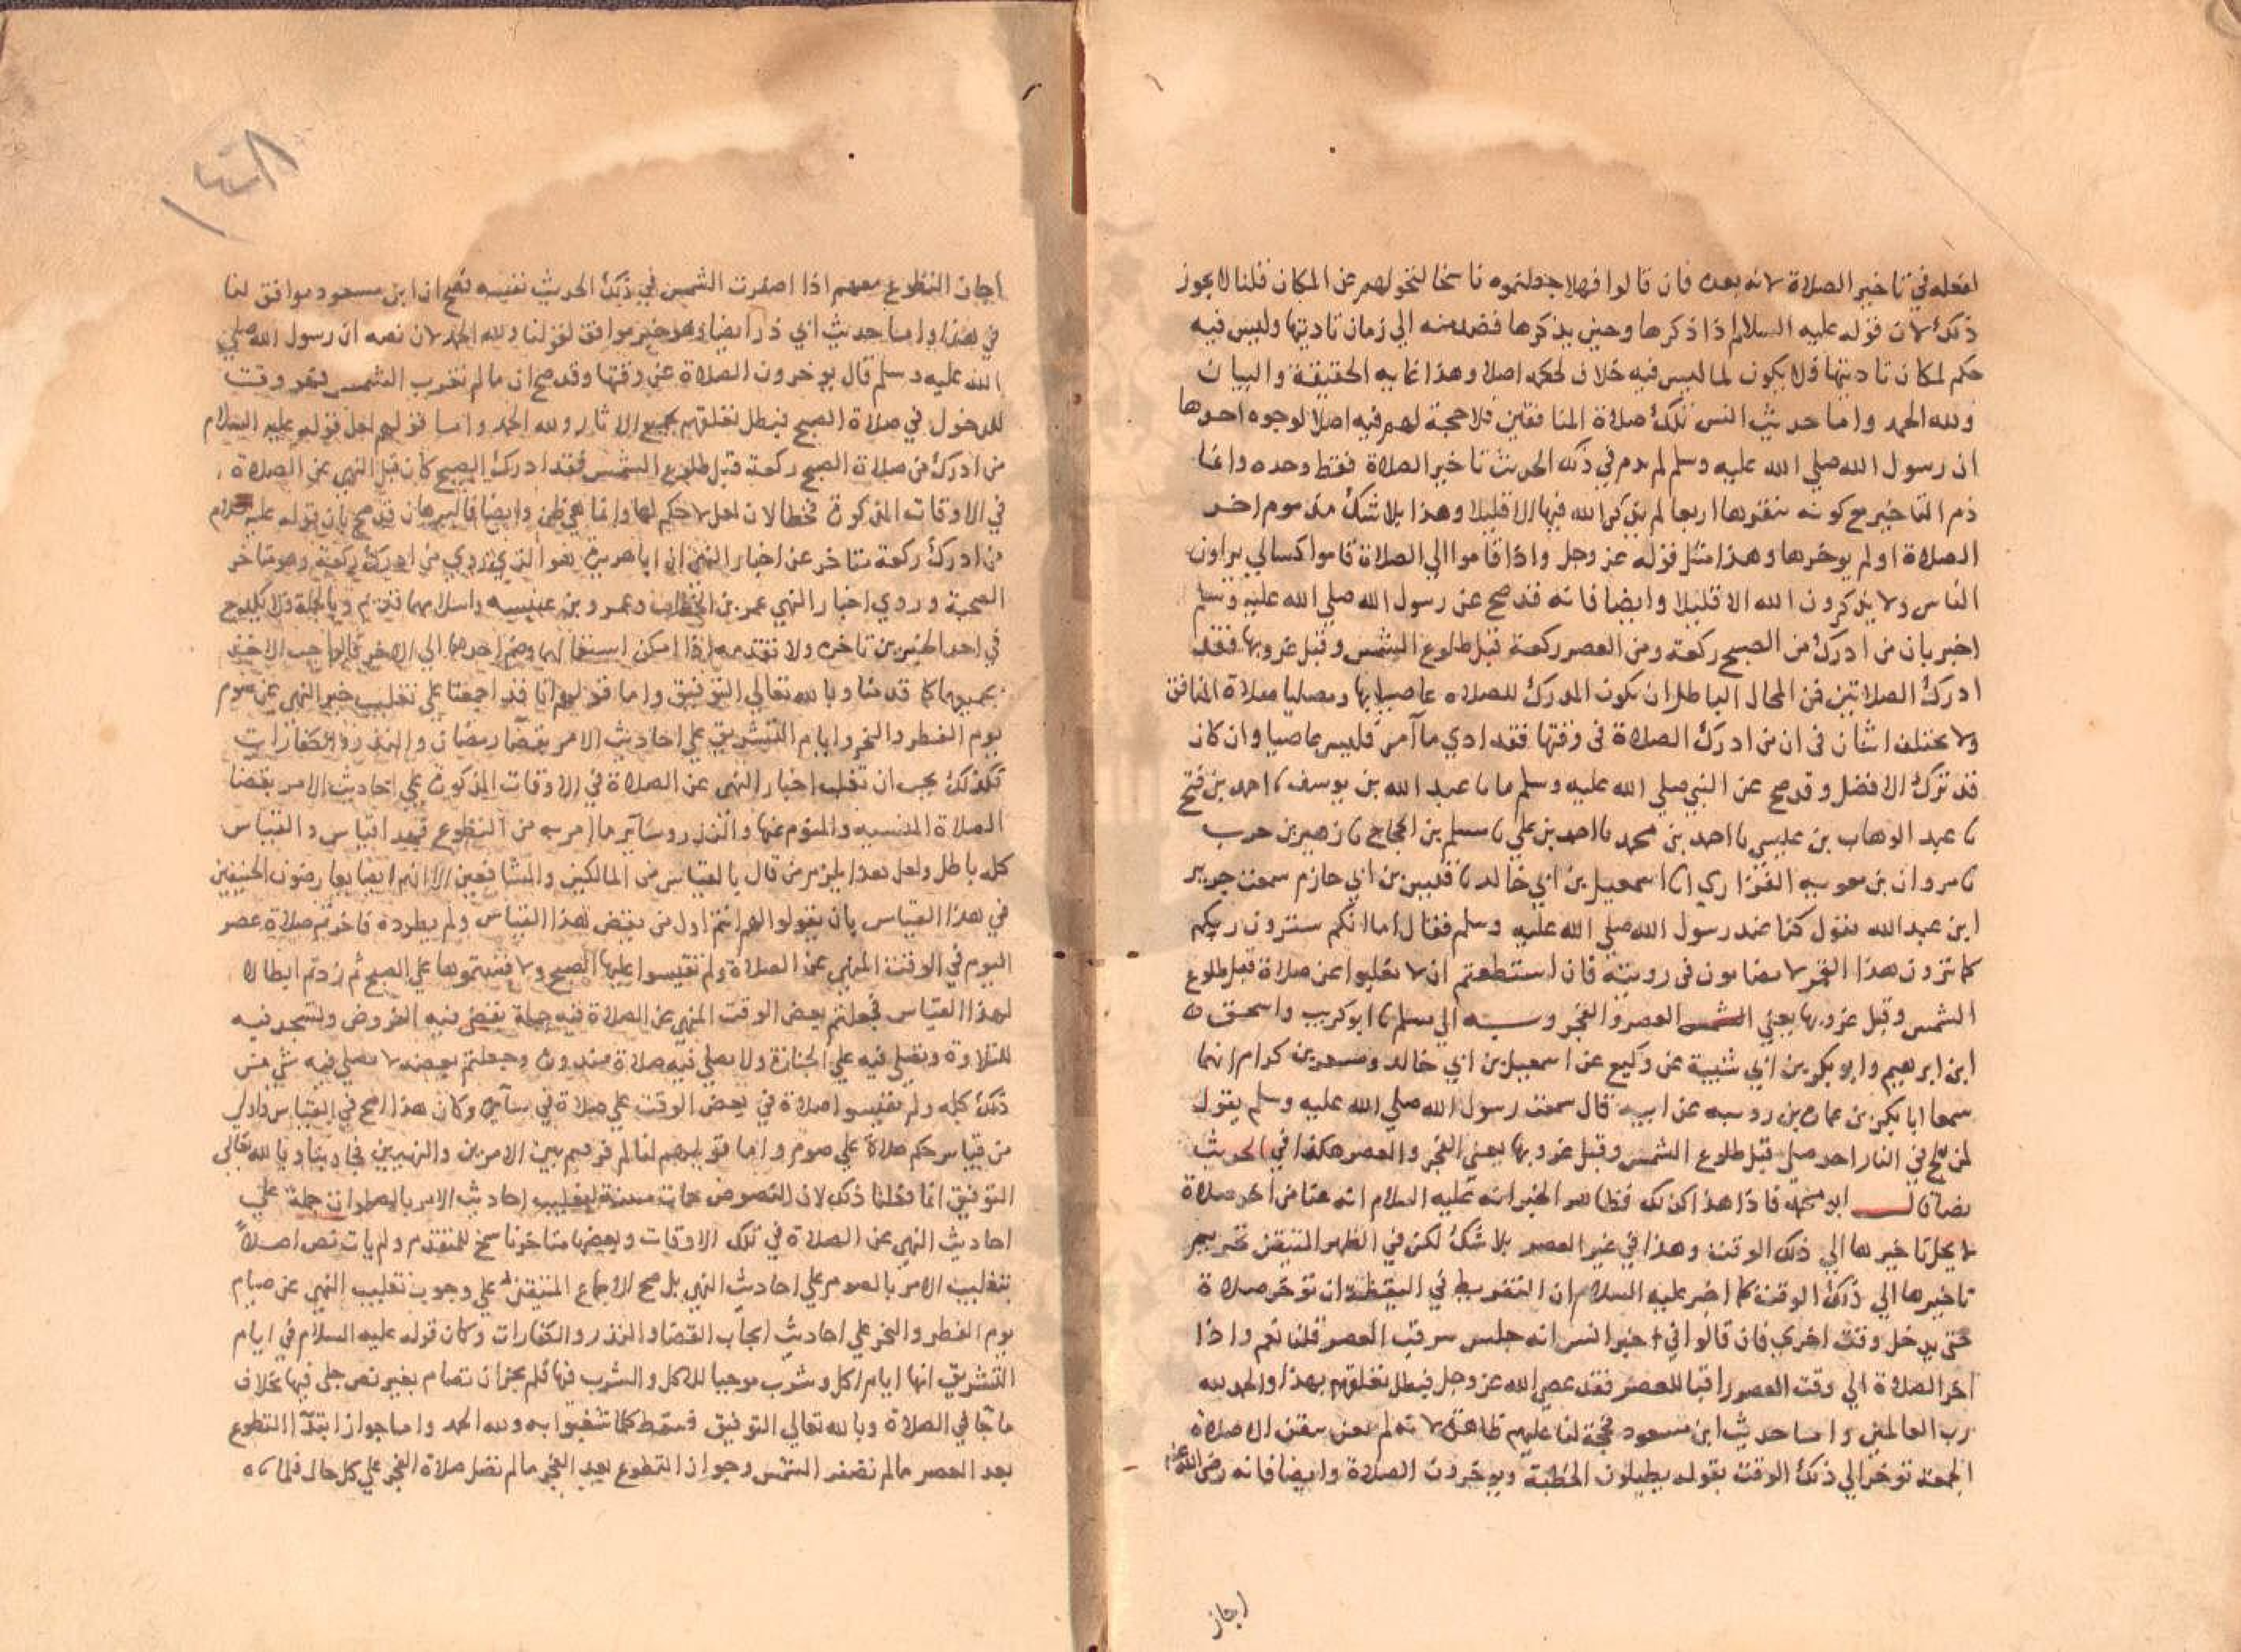 لفعله في تاخير الصلاة لانه بعده فان قالوا فهلا جعلتموه ناسخا لتحولهم عن المكان قلنا لا يجوز
ذلك لان قوله عليه السلام اذا ذكرها وحين يذكرها قصد منه الي زمان تاديتها وليس فيه
حكم لمكان تاديتها فلا يكون لما ليس فيه خلاف لحكمه اصلا وهذا غاية الحقيقة والبيان
ولله الحمد واما حديث انس تلك صلاة المنافقين فلا حجة لهم فيه اصلا لوجوه احدها
ان رسول الله صلي الله عليه وسلم لم يذم في ذلك الحديث تاخير الصلاة فقط وحده وانما
ذم التاخير مع كونه ينقرها اربعا لم يذكر الله فيها الا قليلا وهذا بلا شك مذموم اخر
الصلاة اولم يوخرها وهذا مثل قوله عز وجل واذا قاموا الي الصلاة قاموا كسالي يراون
الناس ولا يذكرون الله الا قليلا وايضا فانه قد صح عن رسول الله صلي الله عليه وسلم
اخبر بان من ادرك من الصبح ركعة ومن العصر ركعة قبل طلوع الشمس وقبل غروبها فقد
ادرك الصلاتين فمن المحال الباطل ان يكون المدرك للصلاه عاصيا بها ومصليا صلاة المنافق
ولا يختلف اثنان في ان من ادرك الصلاة في وقتها فقد ادي ما امر فليس عاصيا وان كان
قد ترك الافضل وقد صح عن النبي صلي الله عليه وسلم ما نا عبد الله بن يوسف نا احمد بن فتح
نا عبد الوهاب بن عليسي نا احمد بن محمد نا احمد بن علي نا مسلم بن الحجاج نا زهير بن حرب
نا مروان بن معويه الفزاري انا اسمعيل بن ابي خالد نا قيس بن ابي حازم سمعت جرير
ابن عبد الله يقول كنا عند رسول الله صلي الله عليه وسلم فقال اما انكم سترون ربكم
كما ترون هذا القمر لا تضامون في رويته فان استطعتم ان لا تغلبوا عن صلاة قبل طلوع
الشمس وقبل غروبها يعني الشمس العصر والفجر وبه الي مسلم نا ابو كريب واسحق
ابن ابرهيم وابو بكر بن ابي شيبة عن وكيع عن اسمعيل بن ابي خالد ومسعر بن كدام انهما
سمعا ابا بكر بن عمارة بن رويبه عن ابيه قال سمعت رسول الله صلي الله عليه وسلم يقول
لن يلج في النار احد صلي قبل طلوع الشمس وقبل غروبها يعني الفجر والعصر هكذا في الحديث
نصا قال ابو محمد فاذا هذا كذلك فظاهر الخبر انه عليه السلام انه عنا من اخر صلاة
لا يحل تاخيرها الي ذلك الوقت وهذا في غير العصر بلا شك لكن في الظهر المتيقن تحريم
تاخيرها الي ذلك الوقت كما اخبر عليه السلام ان التفريط في اليقظة ان توخر صلاة
حتي يدخل وقت اخري فان قالوا في خبر انس انه جلس يرقب العصر قلنا نعم واذا
اخر الصلاة الي وقت العصر راقبا للعصر فقد عصي الله عز وجل فبطل تعلقهم بهذا والحمد لله
رب العالمين واما حديث ابن مسعود فحجة لنا عليهم ظاهرة لانه لم يعن بيقين الا صلاة
الجمعة توخر الي ذلك الوقت بقوله يطيلون الخطبة ويوخرون الصلاة وايضا فانه رضي الله عنه
اجاز
اجاز التطوع معهم اذا اصفرت الشمس في ذلك الحديث نفسه فصح ان ابن مسعود موافق لنا
في هذا واما حديث ابي ذر ايضا وهو خبر موافق لقولنا ولله الحمد لان نصه ان رسول الله صلي
الله عليه وسلم قال يوخرون الصلاة عن وقتها وقد صح ان ما لم تغرب الشمس فهو وقت
للدخول في صلاة الصبح فبطل تعلقهم بجميع الاثار ولله الحمد واما قولهم لعل قوله عليه السلام
من ادرك من صلاة الصبح ركعة قبل طلوع الشمس فقد ادرك الصبح كان قبل النهي عن الصلاة
في الاوقات المذكورة فخطا لان لعل لا حكم لها وانما هي ظن وايضا فالبرهان قد صح بان قوله عليه السلام
من ادرك ركعة متاخر عن اخبار النهي ان ابا هريرة هو الذي روي من ادرك ركعة وهو متاخر
الصحبة وروي اخبار النهي عمر بن الخطاب وعمرو بن عبسه واسلامهما قديم وبالجملة فلا يقدح
في احد الخبرين تاخره ولا تقدمه اذا امكن استعمالهما وضم احدهما الي الاخر فالواجب الاخذ
بجميعهما كما قدمنا وبالله تعالي التوفيق واما قولهم انا قد اجمعنا علي تغليب خبر النهي عن صوم
يوم الفطر والنحر وايام التشريق علي احاديث الامر بقضاء رمضان والنذر والكفارات
فكذلك يجب ان تغلب اخبار النهي عن الصلاة في الاوقات المذكورة علي احاديث الامر بقضا
الصلاة المنسيه والمنوم عنها والنذر وساير ما امر به من التطوع فهذا قياس والقياس
كله باطل ولعل هذا يلزم من قال بالقياس من المالكيين والشافعيين الا انهم ايضا يعارضون الحنيفين
في هذا القياس بان يقولوا لهم انتم اول من نقض هذا القياس ولم يطرده فاخرتم صلاة عصر
اليوم في الوقت المنهي عن الصلاة ولم تقيسوا عليها الصبح ولا قستموها علي الصبح ثم زدتم ابطالا
لهذا القياس فجعلتم بعض الوقت المنهي عن الصلاة فيه جملة تقضي فيه الفروض وتسجد فيه
للتلاوة وتصلي فيه علي الجنازة ولا يصلي فيه صلاة منذورة وجعلتم بعضه لا يصلي فيه شي من
ذلك كله ولم تقيسوا صلاة في بعض الوقت علي صلاة في سايره وكان هذا اصح في القياس واولي
من قياس حكم صلاة علي صوم واما قولهم لنا لم فرقتم بين الامرين والنهيين فجاوبنا وبالله تعالي
التوفيق انما فعلنا ذلك لان النصوص جات مبينة لتغليب احاديث الامر بالصلوات جملة علي
احاديث النهي عن الصلاة في تلك الاوقات وبعضها متاخر ناسخ للمتقدم ولم يات نص اصلا
بتغليب الامر بالصوم علي احاديث النهي بل صح الاجماع المتيقن علي وجوب تغليب النهي عن صيام
يوم الفطر والنحر علي احاديث ايجاب القضاء والنذر والكفارات وكان قوله عليه السلام في ايام
التشريق انها ايام اكل وشرب موجبا للاكل والشرب فيها فلم يجز ان تصام بغير نص جلي فيها بخلاف
ما جا في الصلاة وبالله تعالي التوفيق فسقط كلما شغبوا به ولله الحمد واما جواز ابتداء التطوع
بعد العصر ما لم تصفر الشمس وجواز التطوع بعد الفجر ما لم تصل صلاة الفجر علي كل حال فلما نا